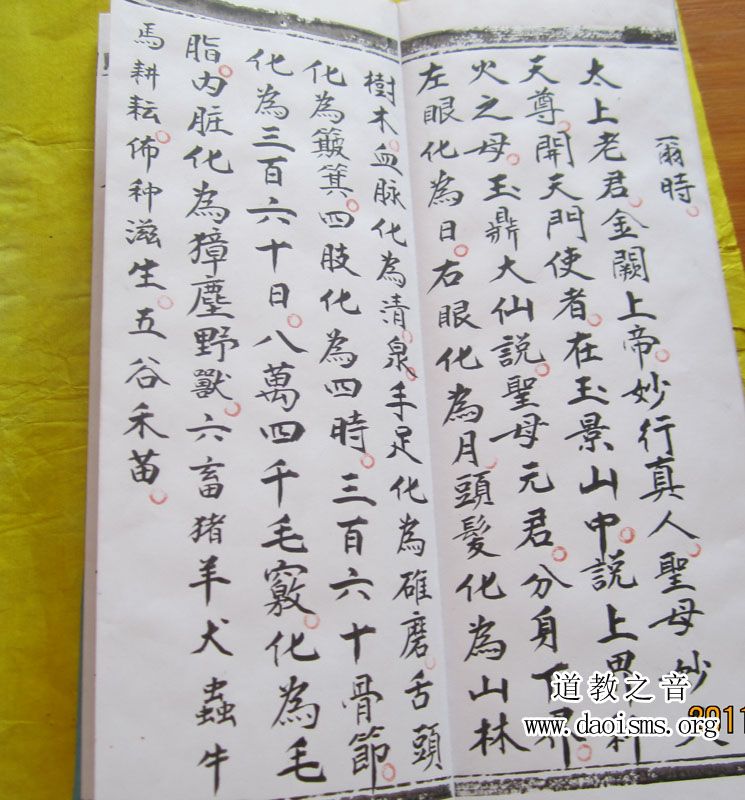 爾時。
太上老君。金闕上帝。妙行真人。聖母妙
天尊。開天門使者。在玉景山中。說上界
火之母。玉鼎大仙說。聖母元君。分身下界。
左眼化為日。右眼化為月。頭髮化為山林
樹木。血脉化為清泉。手足化為碓磨。舌頭
化為簸箕。四肢化為四時。三百六十骨節。
化為三百六十日。八萬四千毛竅。化為毛
脂。内脏化為獐麈野獸。六畜猪羊犬蟲牛
馬耕耘。佈种滋生。五谷禾苗。
道教之音
www.daoisms.org
2011